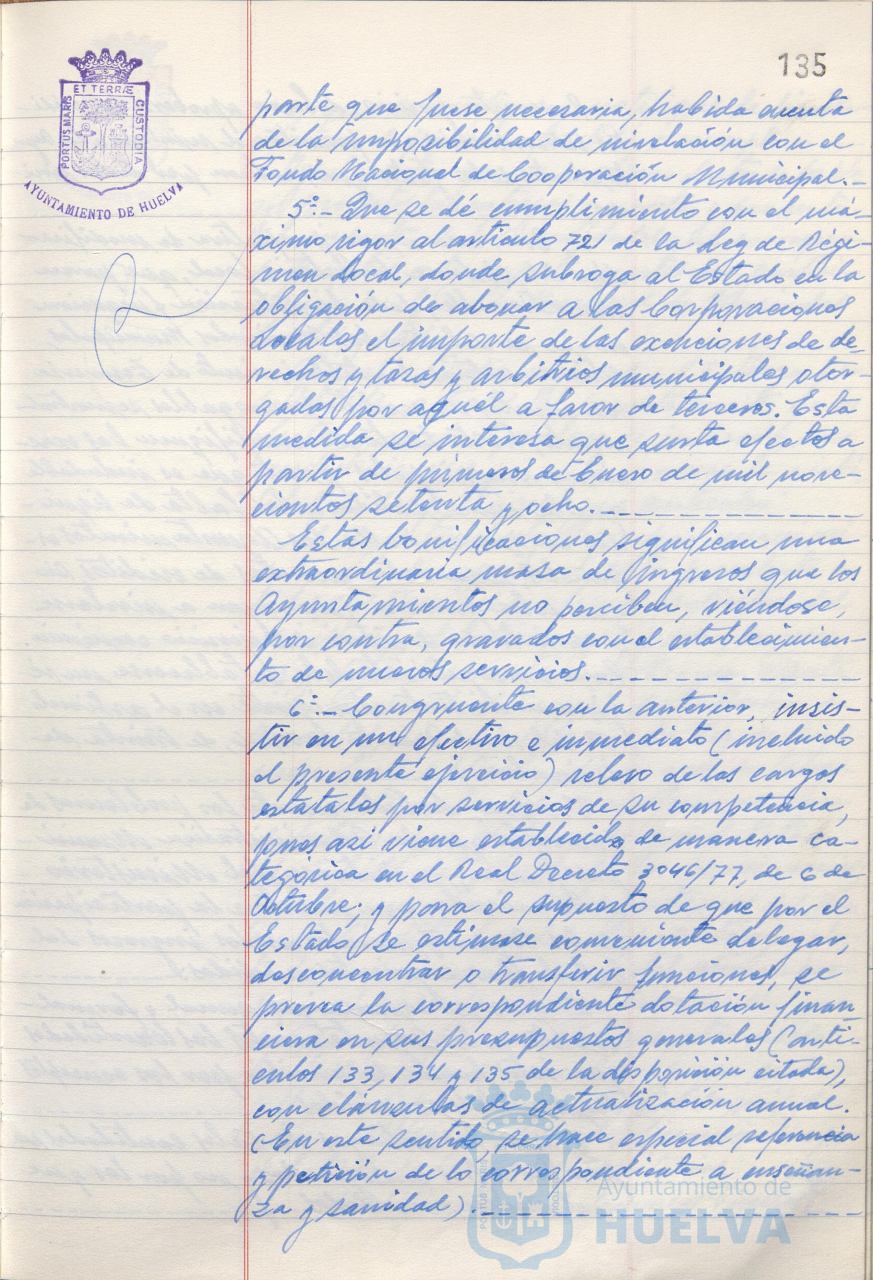 135
ET TERRÆ
PORTUS MARIS
CUSTODIA
AYUNTAMIENTO DE HUELVA
parte que fuese necesaria, habida cuenta
de la imposibilidad de nivelación con el
Fondo Nacional de Cooperación Municipal.-
5º.- Que se dé cumplimiento con el má-
ximo rigor al artículo 721 de la Ley de Régi-
men Local, donde subroga al Estado en la
obligación de abonar a las Corporaciones
Locales el importe de las exenciones de de-
rechos y tasas y arbitrios municipales otor-
gados por aquél a favor de terceros. Esta
medida se interesa que surta efectos a
partir de primeros de Enero de mil nove-
cientos setenta y ocho.
Estas bonificaciones significan una
extraordinaria masa de ingresos que los
Ayuntamientos no perciben, viéndose,
por contra, gravados con el establecimien-
to de nuevos servicios.
6º.- Congruente con la anterior, insis-
tir en un efectivo e inmediato (incluido
el presente ejercicio) relevo de las cargas
estatales por servicios de su competencia,
pues así viene establecido de manera ca-
tegórica en el Real Decreto 3046/77, de 6 de
Octubre; y para el supuesto de que por el
Estado se estimase conveniente delegar,
desconcentrar o transferir funciones, se
prevea la correspondiente dotación finan-
ciera en sus presupuestos generales (artí-
culos 133, 134 y 135 de la disposición citada),
con cláusulas de actualización anual.
(En este sentido, se hace especial referencia
y petición de lo correspondiente a enseñan-
za y sanidad).
Ayuntamiento de
HUELVA